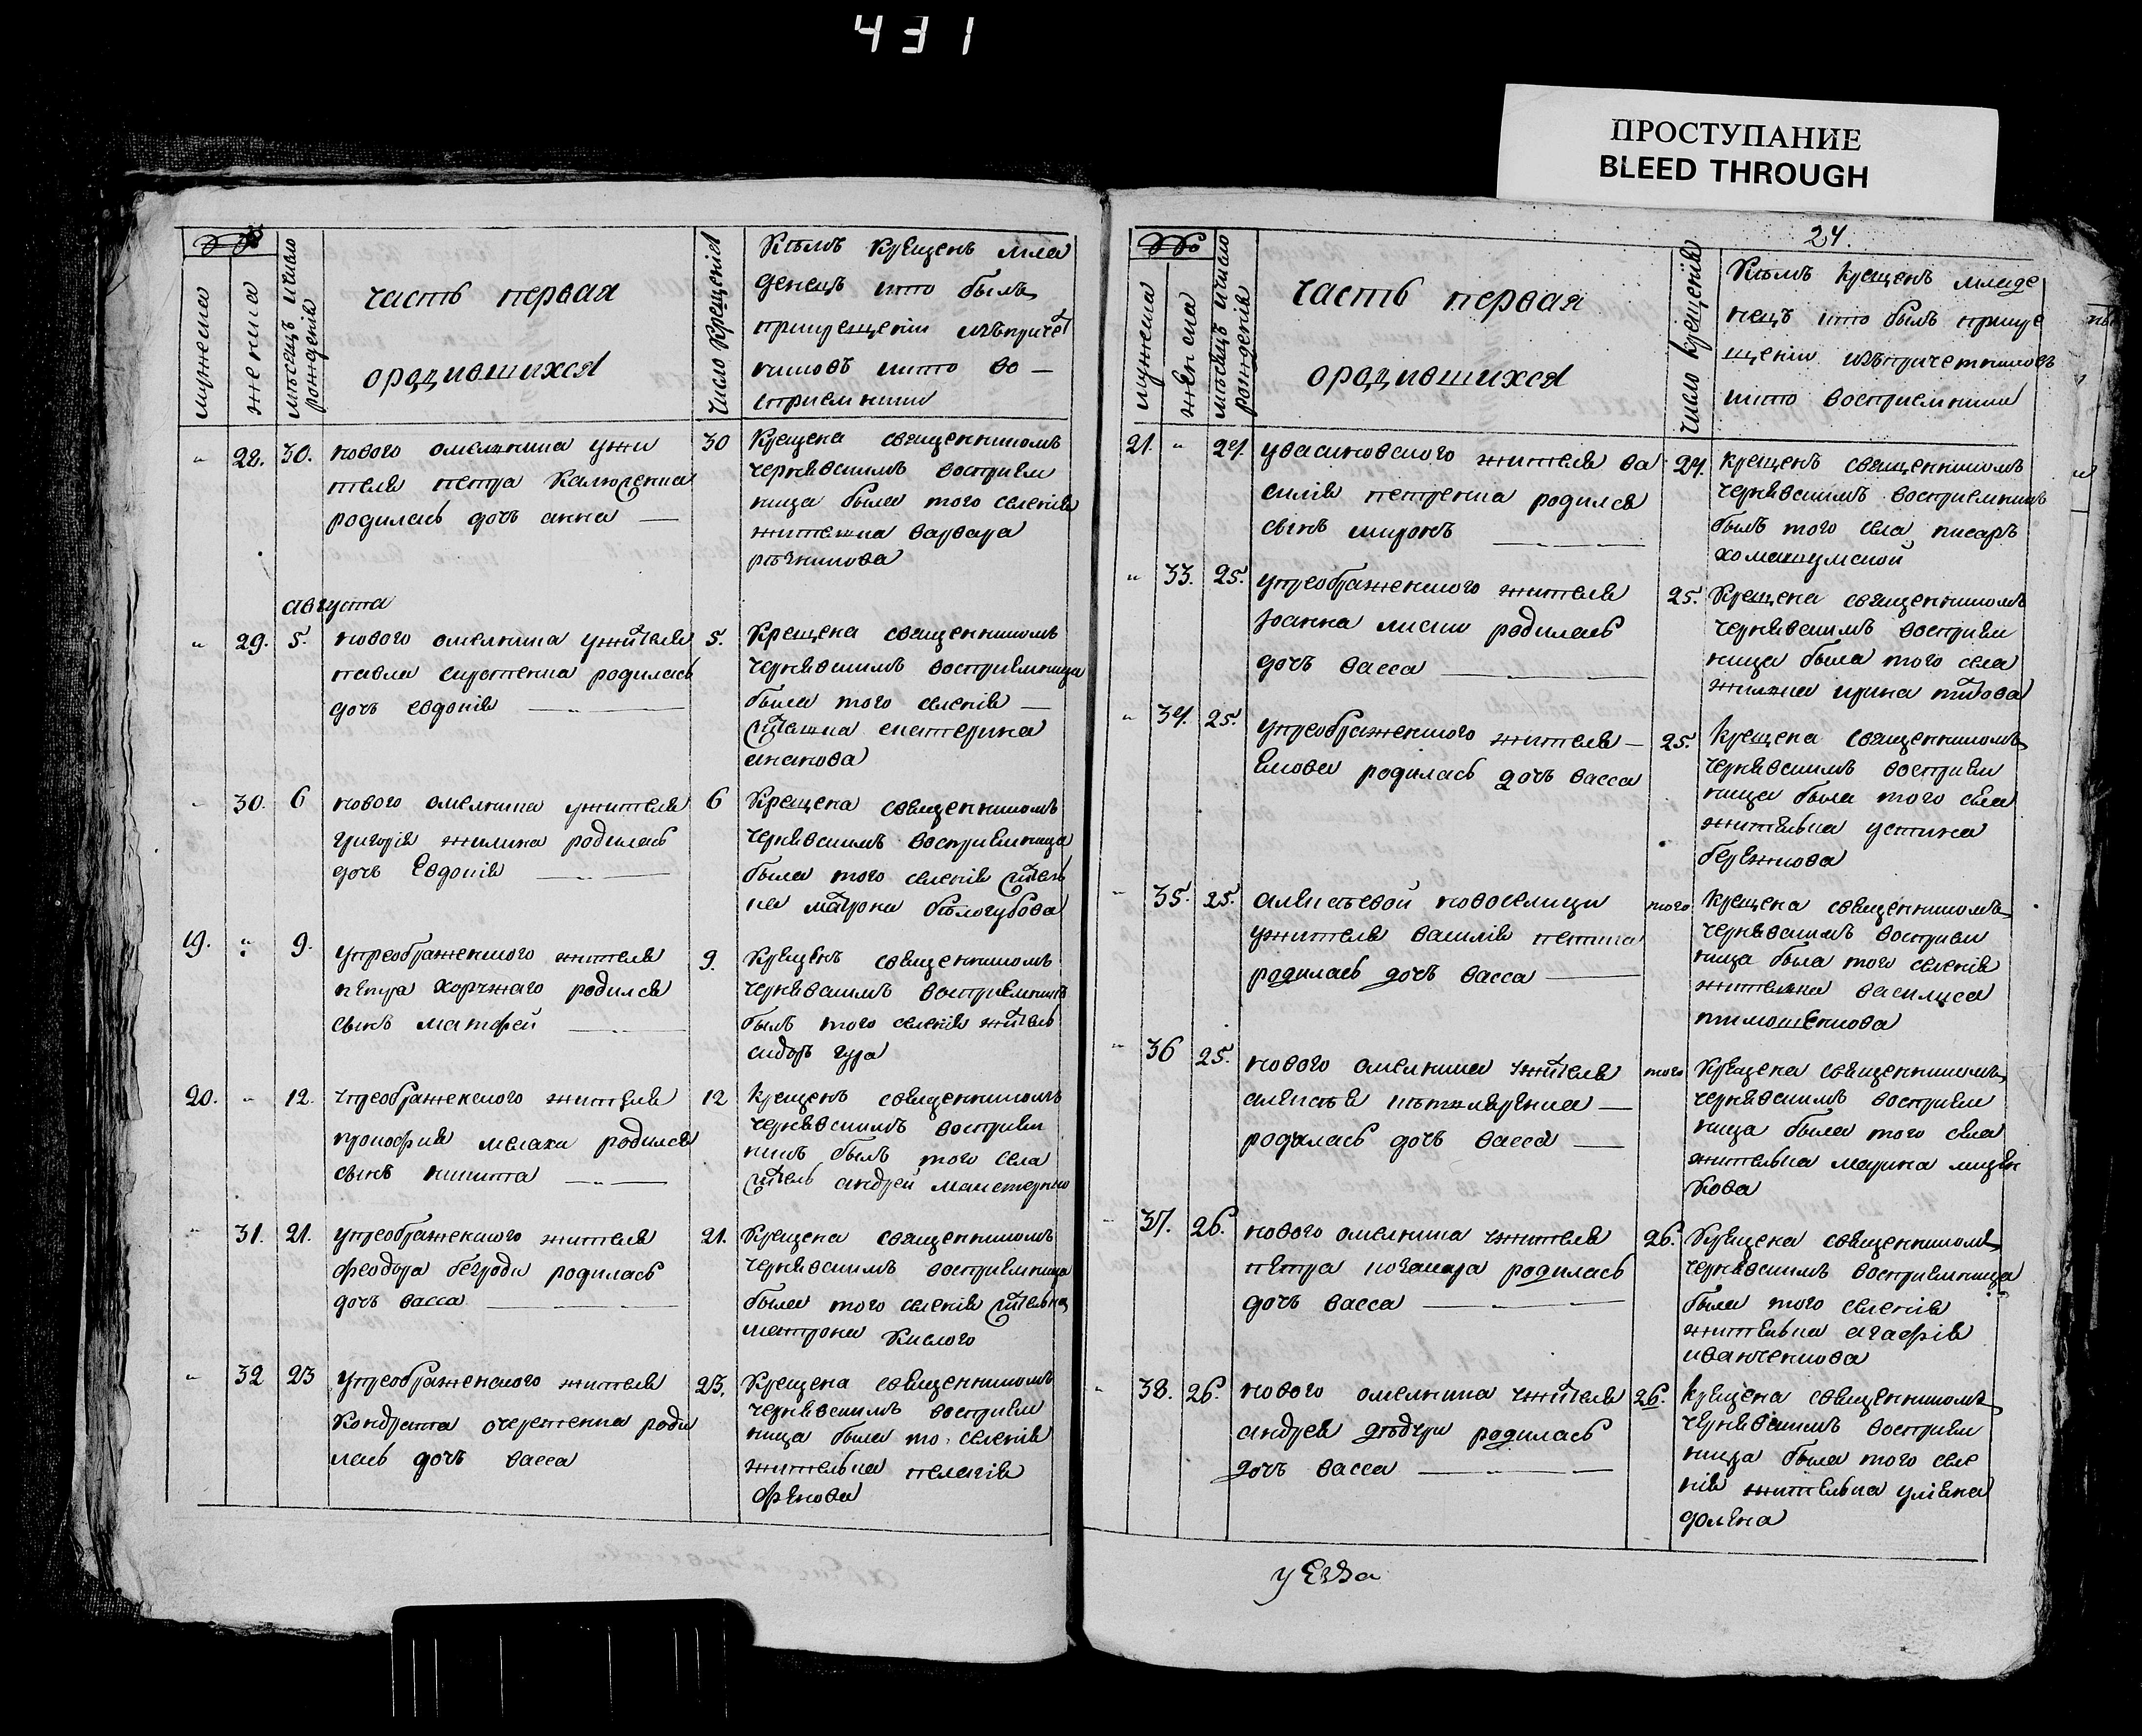 431
ПРОСТУПАНИЕ
BLEED THROUGH
мужеска
женска
мѣсяцъ и число
рожденія
часть первая
ородившихся
число крещенія
Кѣмъ крещенъ мла
денецъ икто былъ
прикрещеніи изъпричет
никовъ икто во —
спріемники
" 28. 30.
нового омелника ужи
теля петра
родилась дочь анна —
30
Крещена священникомъ
чернявскимъ воспріем
ница была того селенія
жителка варвара
рѣзникова
августа
" 29. 5.
нового омелника ужителя
павла сиротенка родилась
дочь евдокія —
5.
Крещена священникомъ
чернявскимъ воспріемница
была того селенія —
жителка екатерина
исакова
" 30. 6
нового омелника ужителя
григорія жилина родилась
дочь Евдокія —
6
Крещена священникомъ
чернявскимъ воспріемница
была того селенія жителъ
ка матрона бѣлогубова
19. " 9.
упреображенского жителя
петра хоружаго родился
сынъ матфей —
9.
Крещенъ священникомъ
чернявскимъ воспріемникъ
былъ того селенія житель
сидоръ гура
20. " 12.
упреображенского жителя
прокофия малахи родился
сынъ никита —
12
Крещенъ священникомъ
чернявскимъ воспріем
никъ былъ того села
житель андрей
" 31. 21.
упреображенского жителя
феодора безроди родилась
дочь васса —
21.
Крещена священникомъ
чернявскимъ воспріемница
была того селенія жителька
матрона Кислого
" 32 23
упреображенского жителя
Кондрата очеретенка роди
лась дочь васса
23.
Крещена священникомъ
чернявскимъ воспріем
ница была то. селенія
жителька пелагія
24.
мужеска
женска
мѣсяцъ и число
рожденія
часть первая
ородившихся
число крещенія
Кѣмъ крещенъ младе
нецъ икто былъ прикре
щеніи изъпричетниковъ
икто воспріемники
21. " 24.
жителя ва
силія петренка родился
сынъ миронъ —
24.
крещенъ священникомъ
чернявскимъ воспріемникъ
былъ того села писаръ
" 33. 25.
упреображенского жителя
іоанна лисии родилась
дочь васса —
25.
Крещена священникомъ
чернявскимъ воспріем
ница была того села
жителка ирина титова
" 34. 25.
упреображенского жителя —
родилась дочь васса
25.
Крещена священникомъ
чернявскимъ воспріем
ница была того села
жителька устина
бережнова
" 35. 25.
алексѣевой новоселици
ужителя василія петика
родилась дочь васса —
того
Крещена священникомъ
чернявскимъ воспріем
ница была того селенія
жителка василиса
тимошенкова
" 36 25.
нового омелника ужителя
алексѣя —
родилась дочь васса —
того
Крещена священникомъ
чернявскимъ воспріем
ница была того села
жителька марина мицен
кова
" 37. 26.
нового омелника ужителя
петра родилась
дочь васса —
26.
Крещена священникомъ
чернявскимъ воспріемница
была того селенія
жителька агафія
иванченкова
" 38. 26.
нового омелника ужителя
андрея родилась
дочь васса —
26.
крещена священникомъ
чернявскимъ воспріем
ница была того селе
нія жителька уліяна
долена
уезда